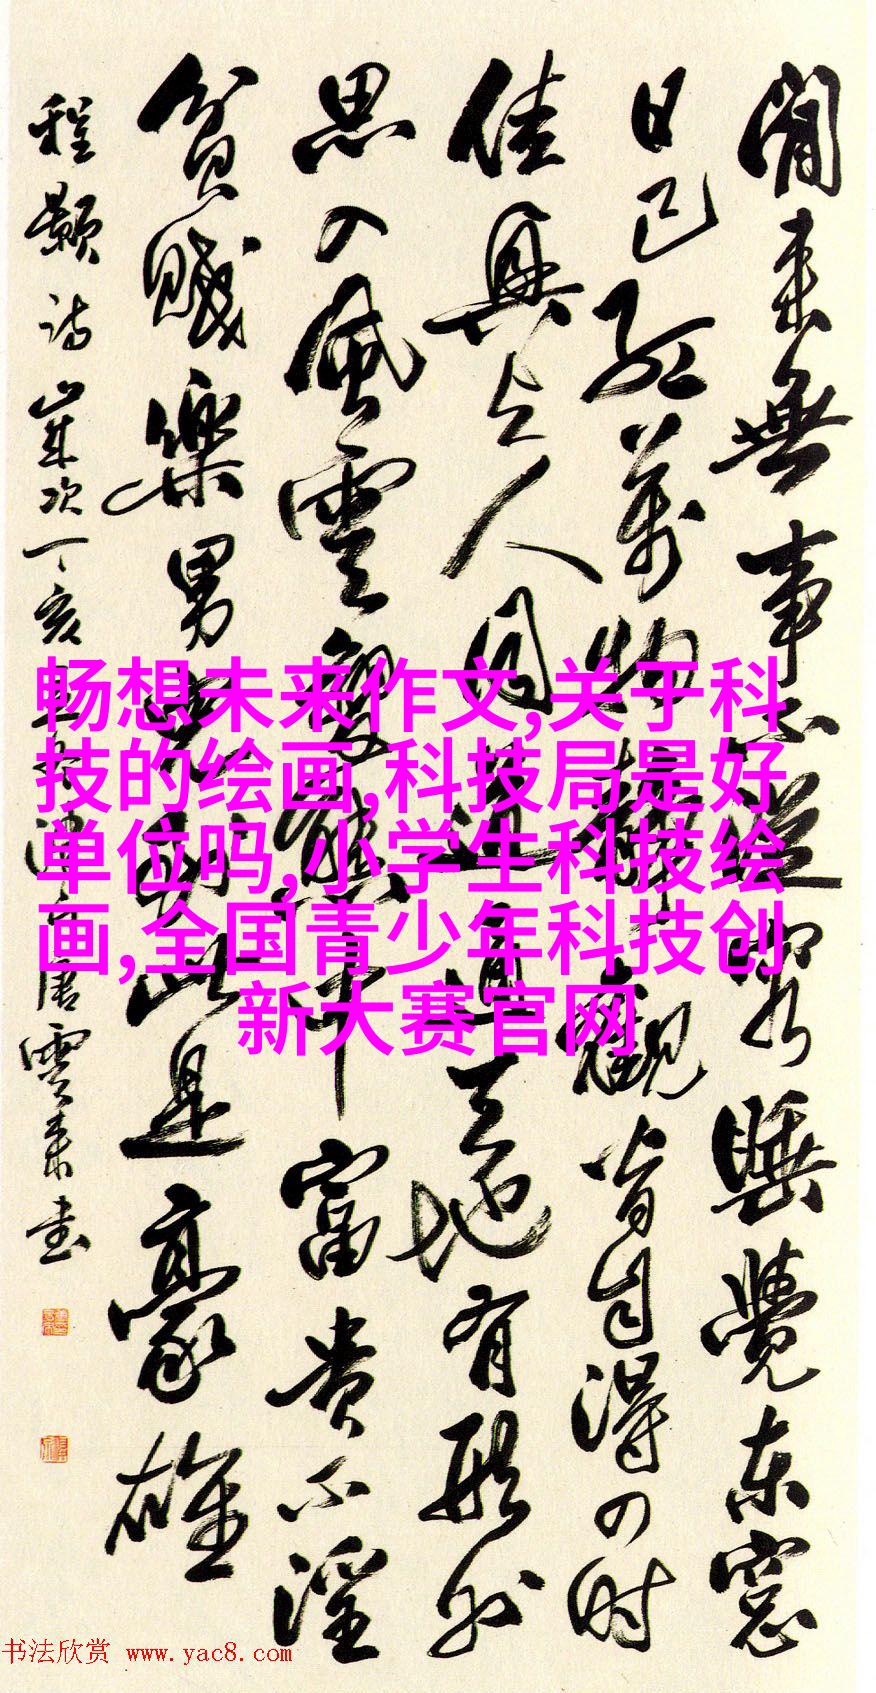 閒来無事不從容睡覺东窓
日已红萬物静觀皆自得四时
佳興与人同道通天地有形外
思入風雲變態中富贵不淫
貧賤樂男兒到此是豪雄
程颢诗岁次丁亥年冬津门唐雲来书
畅想未来作文,关于科
技的绘画,科技局是好
单位吗,小学生科技绘
画,全国青少年科技创
新大赛官网
书法欣赏 www.yac8.com